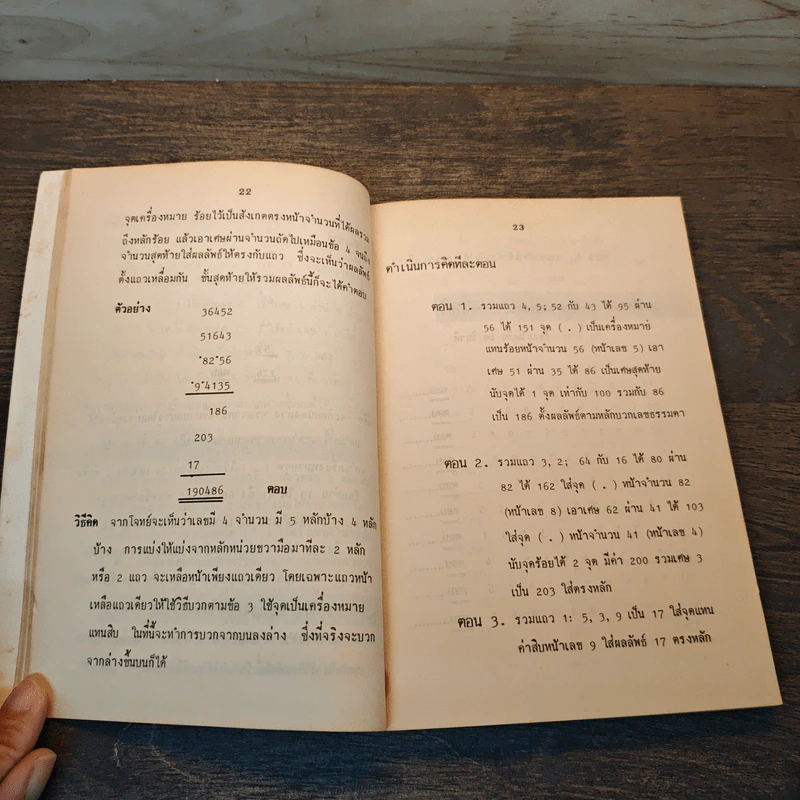 22
จุดเครื่องหมาย ร้อยไว้เป็นสังเกตตรงหน้าจำนวนที่ได้ผลรวม
ถึงหลักร้อย แล้วเอาเศษผ่านจำนวนถัดไปเหมือนข้อ 4 จนถึง
จำนวนสุดท้ายใส่ผลลัพธ์ให้ตรงกับแถว ซึ่งจะเห็นว่าผลลัพธ์
ตั้งแถวเหลื่อมกัน ขั้นสุดท้ายให้รวมผลลัพธ์นี้ก็จะได้คำตอบ
ตัวอย่าง 36452
51643
.82.56
.9.4135
186
203
17
190486 ตอบ
วิธีคิด จากโจทย์จะเห็นว่าเลขมี 4 จำนวน มี 5 หลักบ้าง 4 หลัก
บ้าง การแบ่งให้แบ่งจากหลักหน่วยขวามือมาทีละ 2 หลัก
หรือ 2 แถว จะเหลือหน้าเพียงแถวเดียว โดยเฉพาะแถวหน้า
เหลือแถวเดียวให้ใช้วิธีบวกตามข้อ 3 ใช้จุดเป็นเครื่องหมาย
แทนสิบ ในที่นี้จะทำการบวกจากบนลงล่าง ซึ่งที่จริงจะบวก
จากล่างขึ้นบนก็ได้
23
ดำเนินการคิดทีละตอน
ตอน 1. รวมแถว 4, 5; 52 กับ 43 ได้ 95 ผ่าน
56 ได้ 151 จุด ( . ) เป็นเครื่องหมาย
แทนร้อยหน้าจำนวน 56 (หน้าเลข 5) เอา
เศษ 51 ผ่าน 35 ได้ 86 เป็นเศษสุดท้าย
นับจุดได้ 1 จุด เท่ากับ 100 รวมกับ 86
เป็น 186 ตั้งผลลัพธ์ตามหลักบวกเลขธรรมดา
ตอน 2. รวมแถว 3, 2; 64 กับ 16 ได้ 80 ผ่าน
82 ได้ 162 ใส่จุด ( . ) หน้าจำนวน 82
(หน้าเลข 8) เอาเศษ 62 ผ่าน 41 ได้ 103
ใส่จุด ( . ) หน้าจำนวน 41 (หน้าเลข 4)
นับจุดร้อยได้ 2 จุด มีค่า 200 รวมเศษ 3
เป็น 203 ใส่ตรงหลัก
ตอน 3. รวมแถว 1: 5, 3, 9 เป็น 17 ใส่จุดแทน
ค่าสิบหน้าเลข 9 ใส่ผลลัพธ์ 17 ตรงหลัก